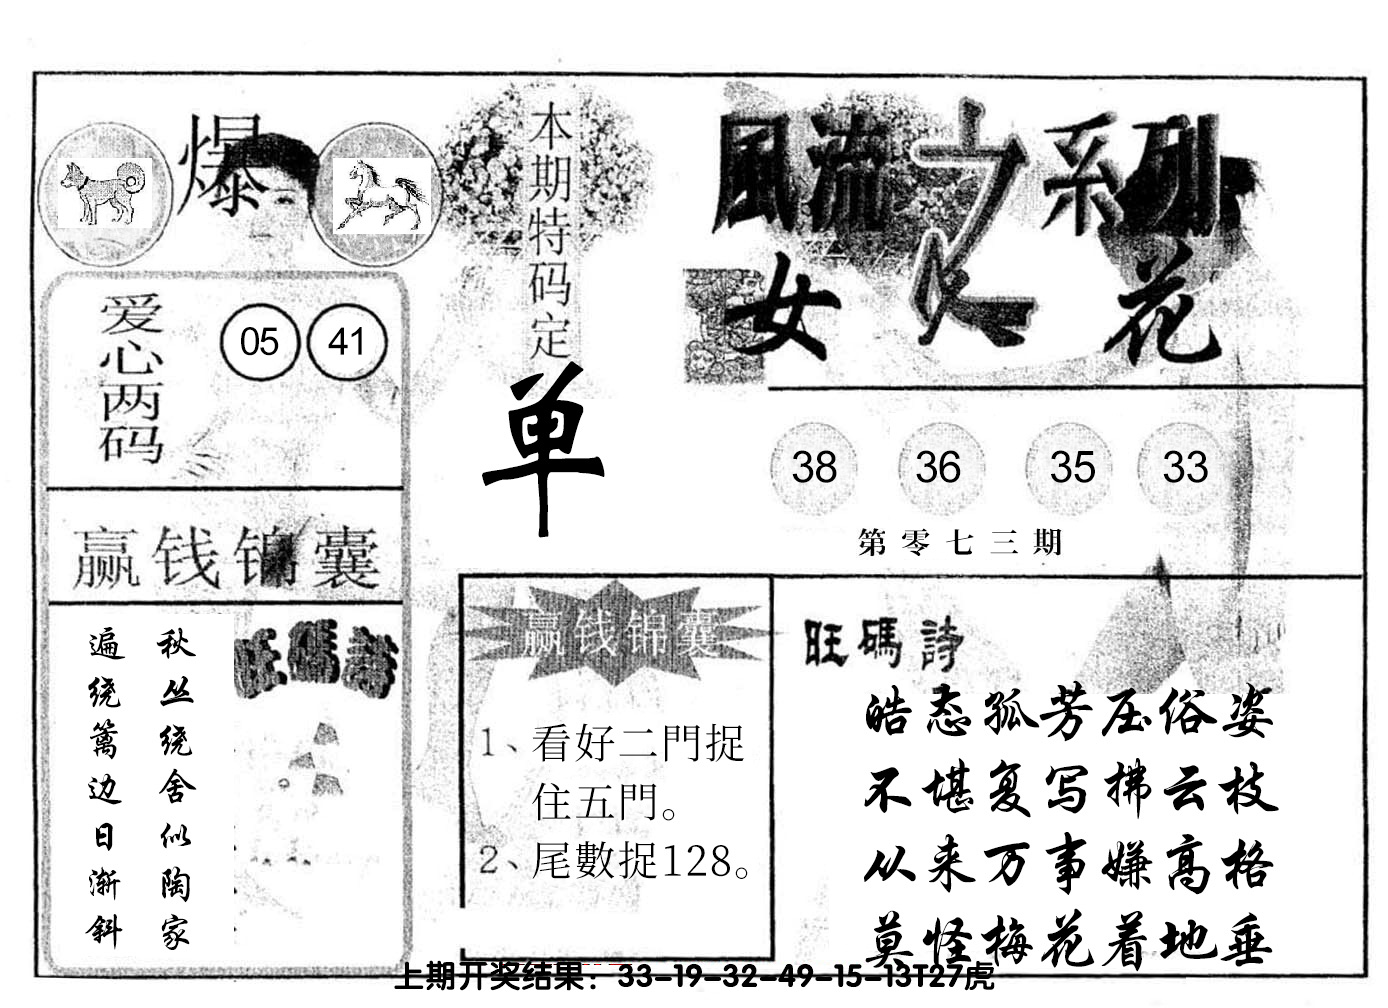 爆
爱心两码
05 41
赢钱锦囊
秋丛绕舍似陶家
遍绕篱边日渐斜
旺碼詩
本期特码定
单
風流之系列
女人花
38 36 35 33
第零七三期
赢钱锦囊
1、看好二門捉
住五門。
2、尾數捉128。
旺碼詩
皓态孤芳压俗姿
不堪复写拂云枝
从来万事嫌高格
莫怪梅花着地垂
上期开奖结果：33-19-32-49-15-13T27虎